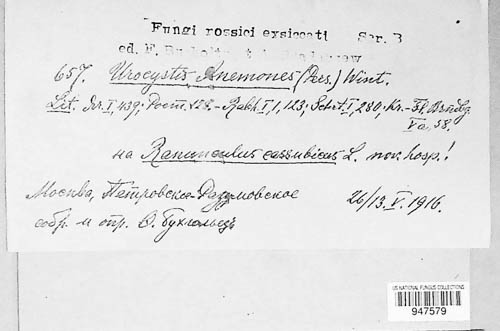 Fungi rossici exsiccati Ser. B
ed. F.
657. Urocystis Anemones (Pers.) Wint.
Lit. I, 439; - Rabh. I, 1, 123; I, 280; Kr.-Fl. Brndbg.
Va, 38.
на Ranunculus cassubicus L. nov. hosp.!
Москва, Петровско-Разумовское 26/13. V. 1916.
собр. и опр. Ѳ. Бухгольцъ
US NATIONAL FUNGUS COLLECTIONS
947579